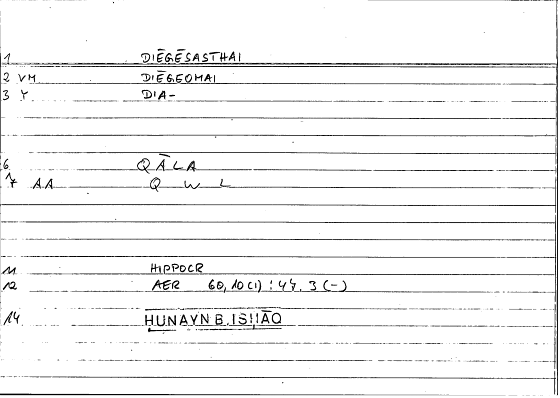 1 DIĒGĒSASTHAI
2 VM DIĒGEOMAI
3 Y DIA-
6 QĀLA
7 AA Q W L
11 HIPPOCR
12 AER 60,10(1) : 47.3 (-)
14 HUNAYN B. ISḤĀQ